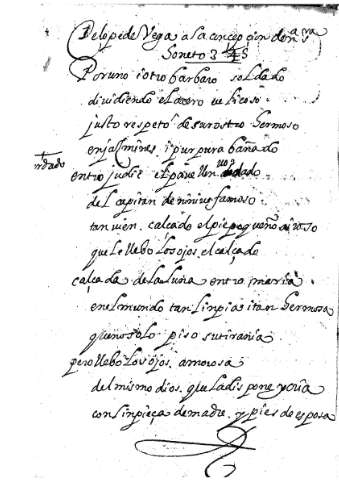 De lope de Vega a la concepcion de nra sra
Soneto 3
Por uno i otro barbaro soldado
dividiendo el açero velicoso
justo respeto de su rostro hermoso
en jasmines i purpura bañado
entro judic el pavellon
del capitan de ninive famoso
tan vien calçado el pie pequeño airoso
que le llebo los ojos el calçado
calçada de la luna entro maria
en el mundo tan linpia i tan hermosa
que no solo piso su tirania
pero llebo los ojos amorosa
del mismo dios que la dispone y cria
con linpieça de madre y pies de esposa